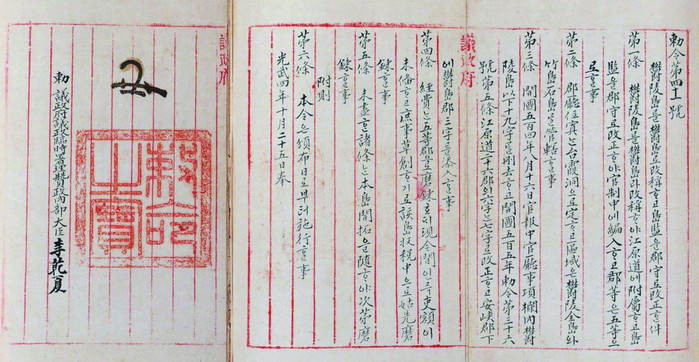 勅令第四十一號
鬱陵島를鬱島로改稱ᄒᆞ고島監을郡守로改正ᄒᆞᆫ件
第一條 鬱陵島를鬱島라改稱ᄒᆞ야江原道에附屬ᄒᆞ고島
監을郡守로改正ᄒᆞ야官制中에編入ᄒᆞ고郡等은五等으
로ᄒᆞᆯ事
第二條 郡廳位寘ᄂᆞᆫ台霞洞으로定ᄒᆞ고區域은鬱陵全島와
竹島石島를管轄ᄒᆞᆯ事
第三條 開國五百四年八月十六日官報中官廳事項欄內鬱
陵島以下十九字를刪去ᄒᆞ고開國五百五年勅令第三十六
號第五條江原道二十六郡의六字ᄂᆞᆫ七字로改正ᄒᆞ고安峽郡下
에鬱島郡三字를添入ᄒᆞᆯ事
第四條 經費ᄂᆞᆫ五等郡으로磨鍊ᄒᆞ되現今間인즉吏額이
未備ᄒᆞ고庶事草創ᄒᆞ기로該島收稅中으로姑先磨
鍊ᄒᆞᆯ事
第五條 未盡ᄒᆞᆫ諸條ᄂᆞᆫ本島開拓을隨ᄒᆞ야次第磨
鍊ᄒᆞᆯ事
附則
第六條 本令은頒布日로부터施行ᄒᆞᆯ事
光武四年十月二十五日奉
議政府
議政府
勅命之寶
勅 議政府議政臨時署理贊政內部大臣 李乾夏